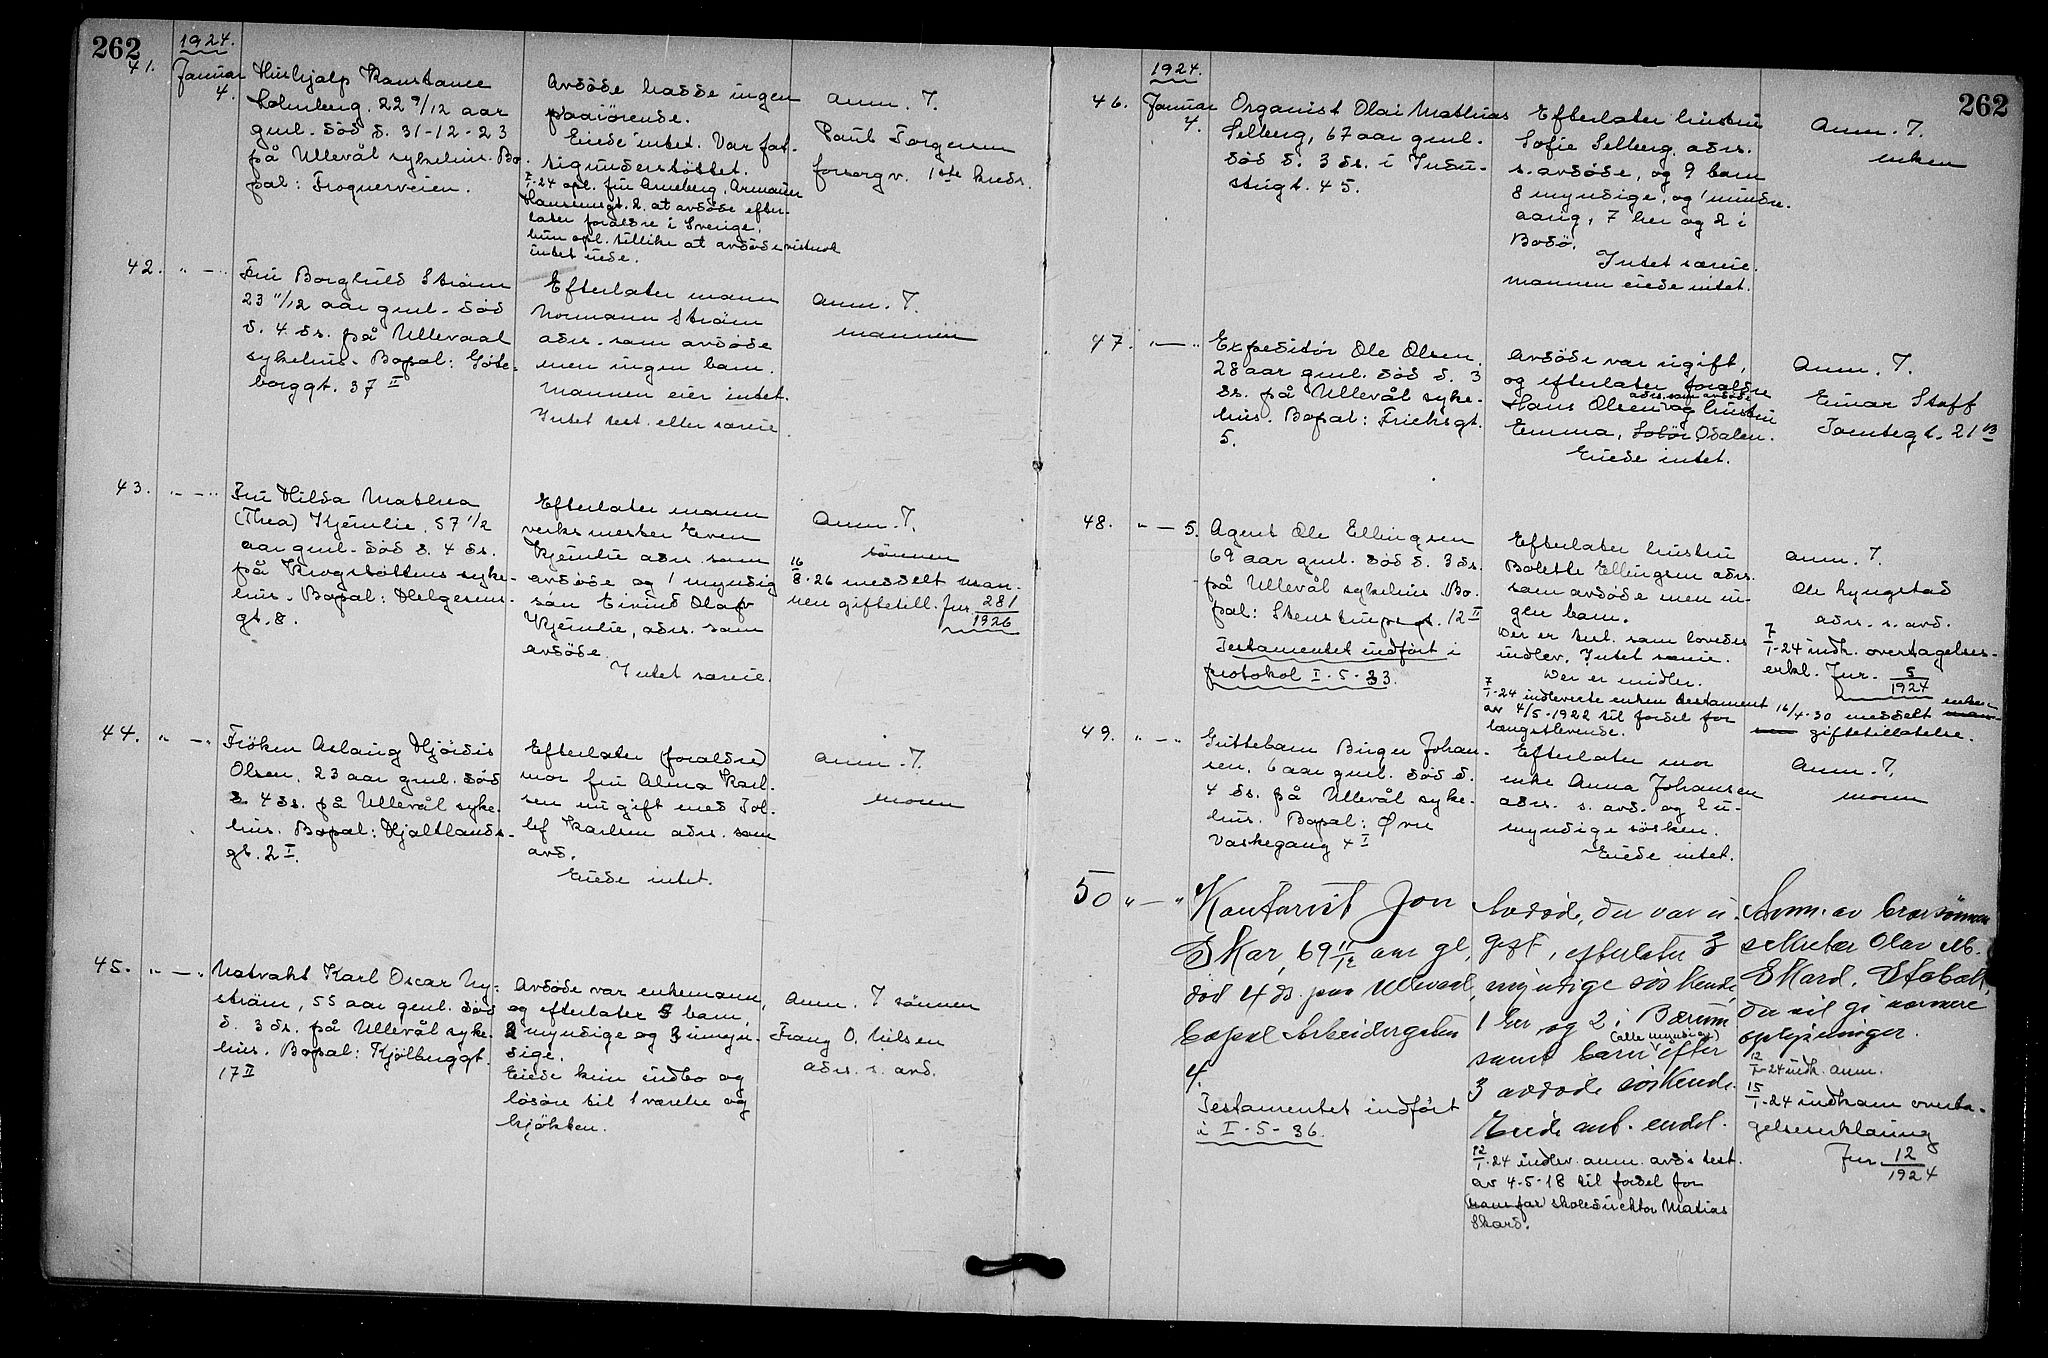 262
1924.
41.
Januar
4.
Hushjælp Konstance
Holmberg. 22 9/12 aar
gml. död d. 31-12-23
på Ullevål sykehus. Bo-
pæl: Frognerveien.
Avdöde hadde ingen
paarörende.
Eiede intet. Var fat-
tigunderstöttet.
7/1-24 opl. fru Arneberg, Armauer
Hansensgt. 2, at avdöde efter-
later forældre i Sverige.
hun opl. tillike at avdöde vistnok
intet eiede.
Anm. T.
Paul Torgersen
forsorg v. 1ste kreds.
42. " — "
Fru Borghild Ström
23 11/12 aar gml. död
d. 4 ds. på Ullevaal
sykehus. Bopæl: Göte-
borggt. 37 II
Efterlater mann
Normann Ström
adrs. som avdöde
men ingen barn.
Mannen eier intet.
Intet test. eller særeie.
Anm. T.
mannen
43. " — "
Fru Hilda Mathea
(Thea) Kjernlie, 57 1/2
aar gml. död d. 4 ds.
på Krogstöttens syke-
hus. Bopæl: Helgesens-
gt. 8.
Efterlater mann
verksmester Even
Kjernlie adrs. som
avdöde og 1 myndig
sön Eivind Olaf
Kjernlie, adrs. som
avdöde.
Intet særeie.
Anm. T.
sönnen
16/8-26 meddelt man-
nen giftetill. Jnr. 281/1926
44. " — "
Fröken Aslaug Hjördis
Olsen, 23 aar gml. död
d. 4 ds. på Ullevål syke-
hus. Bopæl: Hjaltlands-
gt. 2 I.
Efterlater (forældre)
mor fru Alma Karl-
sen nu gift med Tol-
lef Karlsen adrs. som
avd.
Eiede intet.
Anm. T.
moren
45. " — "
Natvakt Karl Oscar Ny-
ström, 55 aar gml. död
d. 3 ds. på Ullevål syke-
hus. Bopæl: Kjölberggt.
17 II
Avdöde var enkemann,
og efterlater 5 barn,
2 myndige og 3 umyn-
dige.
Eiede kun indbo og
lösöre til 1 værelse og
kjökken.
Anm. T sönnen
Franz O. Nilsen
adrs. s. avd.
262
1924.
46.
Januar
4.
Organist Olai Mathias
Selberg, 67 aar gml.
död d. 3 ds. i Indu-
strigt. 45.
Efterlater hustru
Sofie Selberg, adrs.
s. avdöde, og 9 barn
8 myndige, og 1 mindre-
aarig, 7 her og 2 i
Bodö.
Intet særeie.
Mannen eiede intet.
Anm. T.
enken
47. " — "
Expeditör Ole Olsen,
28 aar gml. död d. 3
ds. på Ullevål syke-
hus. Bopæl: Frichsgt.
5.
Avdöde var ugift,
og efterlater forældre
adrs. som avdöde
Hans Olsen og hustru
Emma, Solör Odalen.
Eiede intet.
Anm. T.
Einar Stoff
Tomtegt. 21 B
48. " — 5.
Agent Ole Ellingsen
69 aar gml. död d. 3 ds.
på Ullevål sykehus Bo-
pæl: Stenstrupsgt. 12 II
Testamentet indfört i
protokol I-5-33.
Efterlater hustru
Bolette Ellingsen adrs.
som avdöde men in-
gen barn.
Der er test. som lovedes
indlev. Intet særeie.
Der er midler.
7/1-24 indleverte enken testament
av 4/5-1922 til fordel for
længstlevende.
Anm. T.
Ole Lyngstad
adrs. s. avd.
7/1-24 indk. overtagelses-
erkl. Jnr. 5/1924
16/4-30 meddelt enken
giftetillatelse.
49. " — "
Guttebarn Birger Johan-
sen, 6 aar gml. död d.
4 ds. på Ullevål syke-
hus. Bopæl: Øvre
Vaskegang 4 I
Efterlater mor
enke Anna Johansen
adrs. s. avd. og 2 u-
myndige sösken.
Eiede intet.
Anm. T.
moren
50 " — "
Kontorist Jon
Skar, 69 11/12 aar gl,
död 4 ds. paa Ullevaal,
bopæl Arbeidergaten
4.
Testamentet indfört
i I-5-36.
Avdöde, der var u-
gift, efterlater 3
myndige söskende
1 her og 2 i Bærum,
(alle myndige)
samt barn efter
3 avdöde söskende.
Eiede ant. endel.
12/1-24 indlev. anm. avd's test.
av 4-5-18 til fordel for
(hans far) skoledirektör Matias
Skard.
Anm. av brorsönnen
sekretær Olav M.
Skard, Stabæk,
der vil gi nærmere
oplysninger.
12/1-24 indk. anm.
15/1-24 indkom overta-
gelseserklæring
Jnr 12/1924